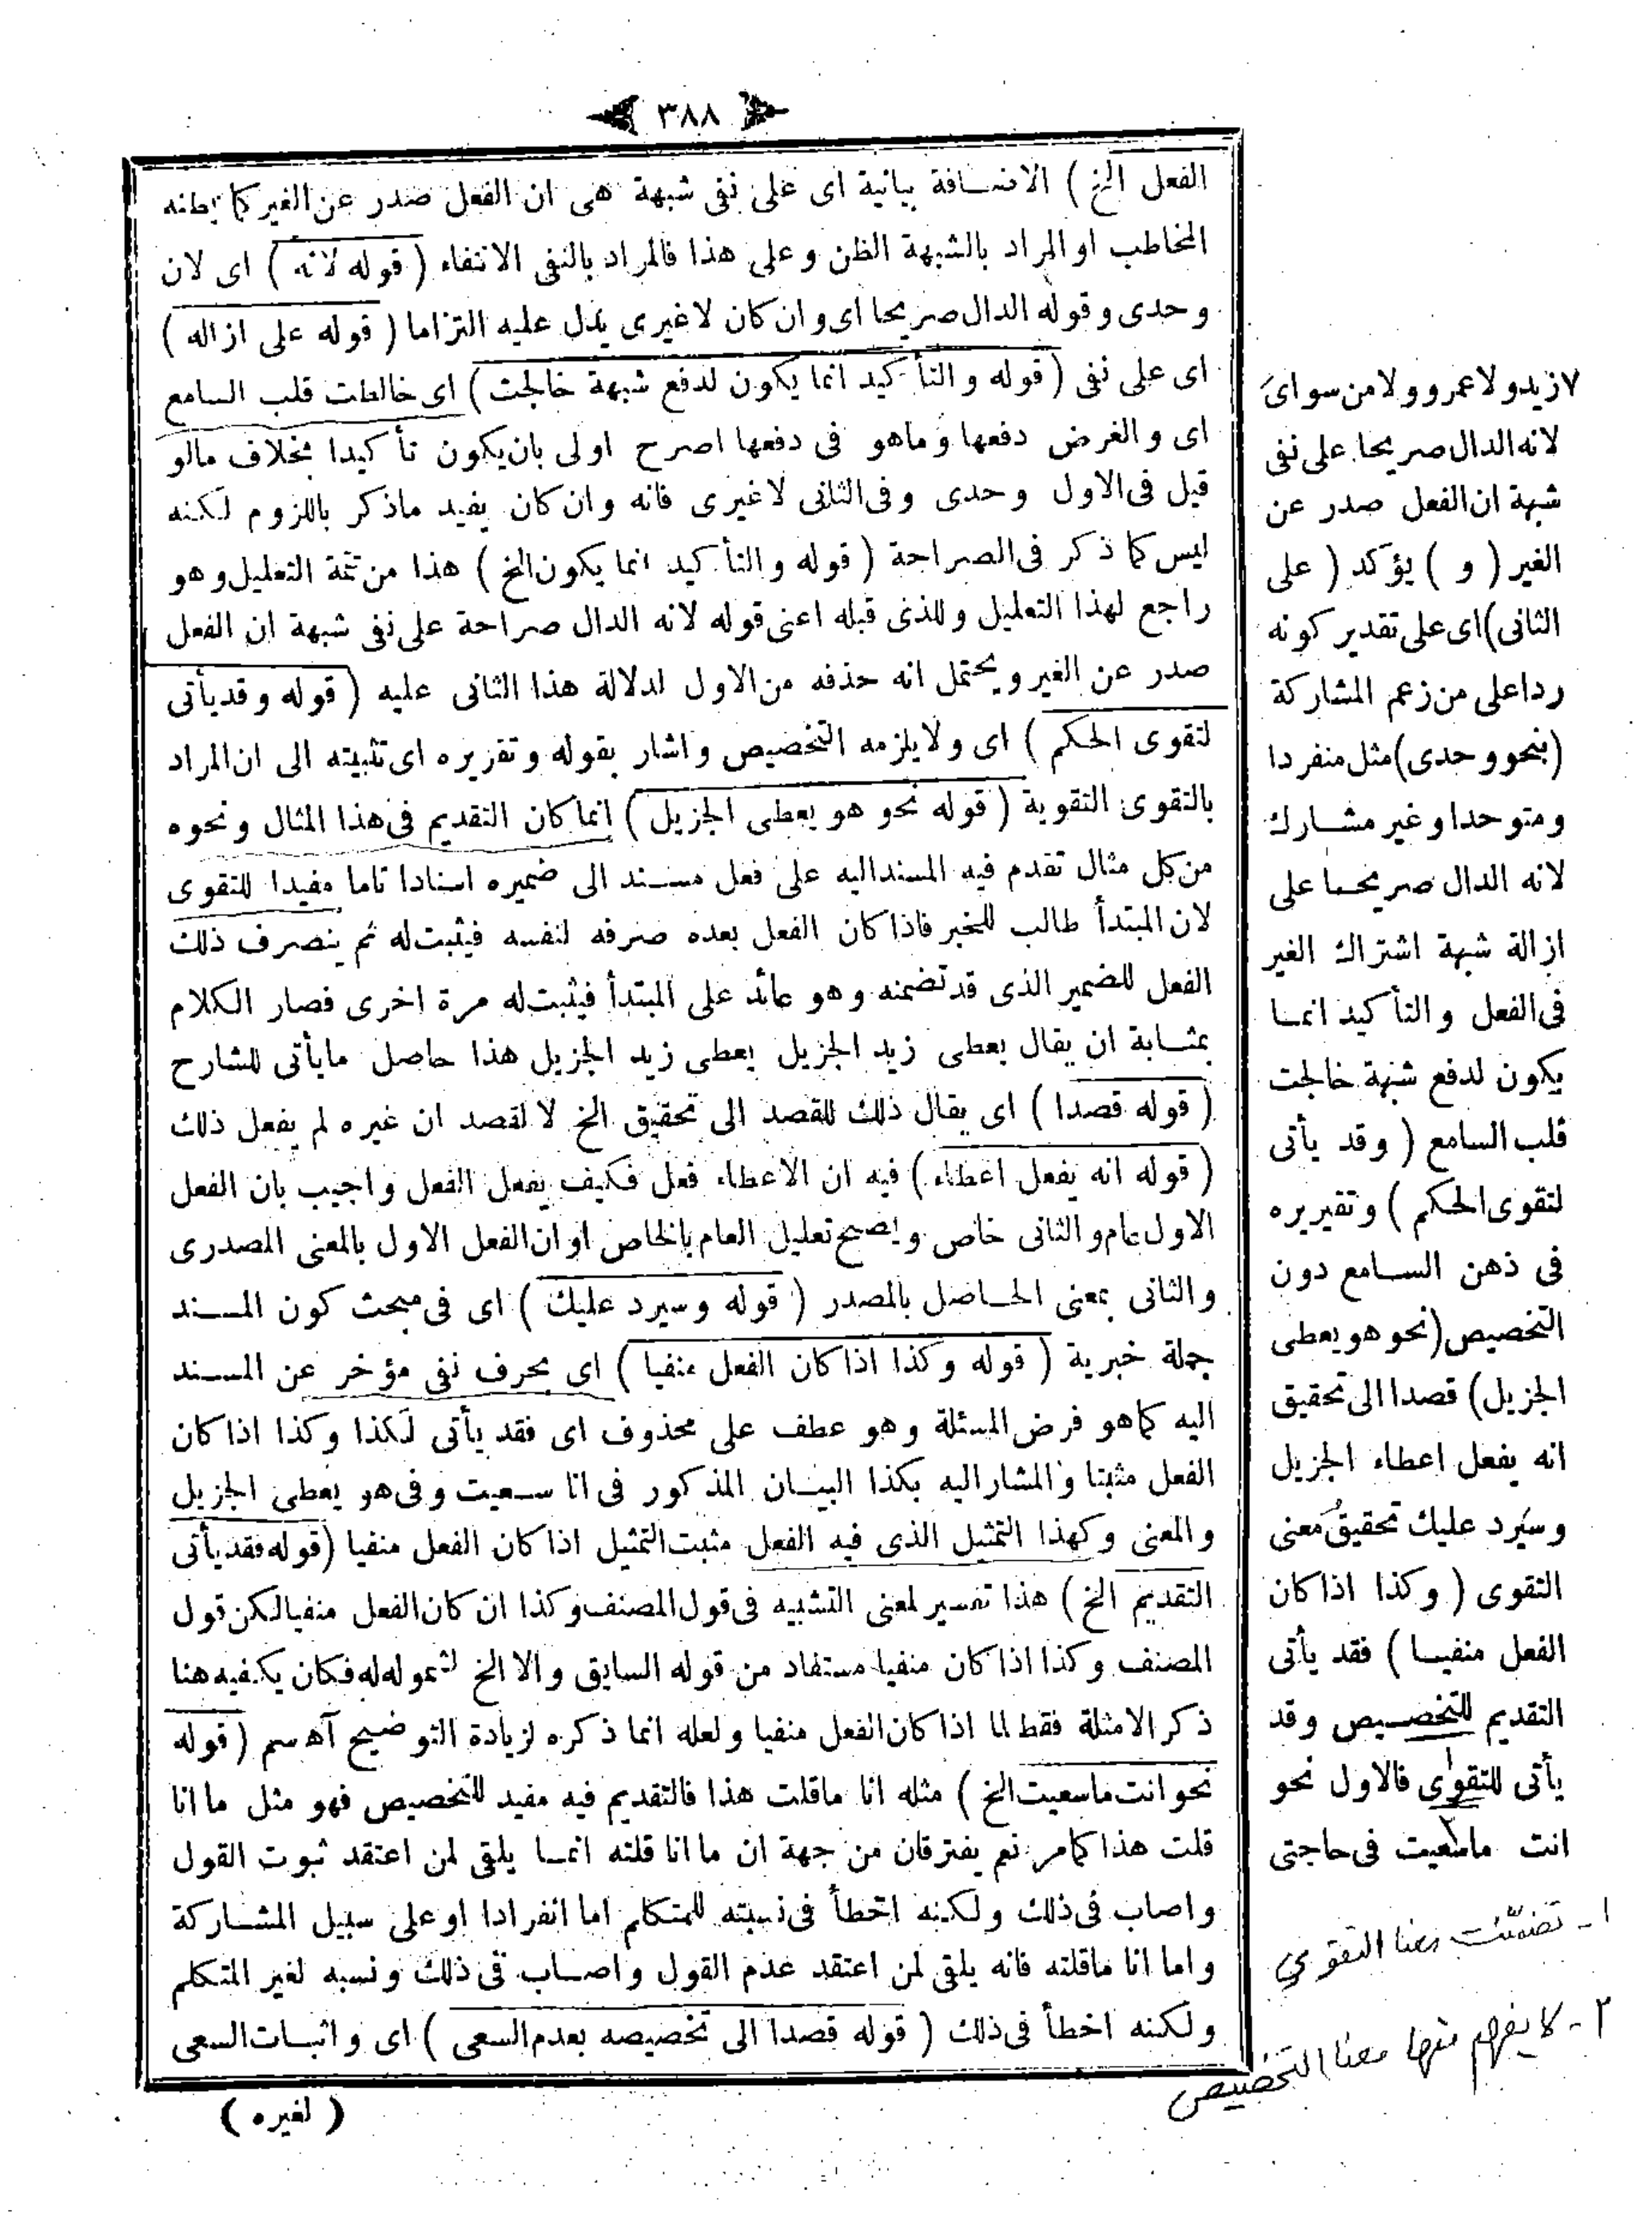 ٣٨٨
الفعل الخ ) الاضافة بيانية اى على نفى شبهة هى ان الفعل صدر عن الغير كما يظنه
المخاطب او المراد بالشبهة الظن وعلى هذا فالمراد بالنفى الانتفاء ( قوله لانه ) اى لان
وحدى وقوله الدال صريحا اى وان كان لا غيرى يدل عليه التزاما ( قوله على ازاله )
اى على نفى ( قوله والتأكيد انما يكون لدفع شبهة خالجت ) اى خالطت قلب السامع
اى والغرض دفعها وماهو فى دفعها اصرح اولى بان يكون تأكيدا بخلاف مالو
قيل فى الاول وحدى وفى الثانى لا غيرى فانه وان كان يفيد ماذكر باللزوم لكنه
ليس كما ذكر فى الصراحة ( قوله والتأكيد انما يكون الخ ) هذا من تتمة التعليل وهو
راجع لهذا التعليل وللذى قبله اعنى قوله لانه الدال صراحة على نفى شبهة ان الفعل
صدر عن الغير ويحتمل انه حذفه من الاول لدلالة هذا الثانى عليه ( قوله وقد يأتى
لتقوى الحكم ) اى ولا يلزمه التخصيص واشار بقوله وتقريره اى تثبيته الى ان المراد
بالتقوى التقوية ( قوله نحو هو يعطى الجزيل ) انما كان التقديم فى هذا المثال ونحوه
من كل مثال تقدم فيه المسند اليه على فعل مسند الى ضميره اسنادا تاما مفيدا للتقوى
لان المبتدأ طالب للخبر فاذا كان الفعل بعده صرفه لنفسه فيثبت له ثم ينصرف ذلك
الفعل للضمير الذى قد تضمنه وهو عائد على المبتدأ فيثبت له مرة اخرى فصار الكلام
بمثابة ان يقال يعطى زيد الجزيل يعطى زيد الجزيل هذا حاصل مايأتى للشارح
( قوله قصدا ) اى يقال ذلك للقصد الى تحقيق الخ لا لقصد ان غيره لم يفعل ذلك
( قوله انه يفعل اعطاء ) فيه ان الاعطاء فعل فكيف يفعل الفعل واجيب بان الفعل
الاول عام والثانى خاص ويصح تعليل العام بالخاص او ان الفعل الاول بالمعنى المصدرى
والثانى بمعنى الحاصل بالمصدر ( قوله وسيرد عليك ) اى فى مبحث كون المسند
جملة خبرية ( قوله وكذا اذا كان الفعل منفيا ) اى بحرف نفى مؤخر عن المسند
اليه كماهو فرض المسئلة وهو عطف على محذوف اى فقد يأتى لكذا وكذا اذا كان
الفعل مثبتا والمشار اليه بكذا البيان المذكور فى انا سعيت وفى هو يعطى الجزيل
والمعنى وكهذا التمثيل الذى فيه الفعل مثبت التمثيل اذا كان الفعل منفيا ( قوله فقد يأتى
التقديم الخ ) هذا تفسير لمعنى التشبيه فى قول المصنف وكذا ان كان الفعل منفيا لكن قول
المصنف وكذا اذا كان منفيا مستفاد من قوله السابق والا الخ لشموله له فكان يكفيه هنا
ذكر الامثلة فقط لما اذا كان الفعل منفيا ولعله انما ذكره لزيادة التوضيح آه سم ( قوله
نحو انت ما سعيت الخ ) مثله انا ماقلت هذا فالتقديم فيه مفيد للتخصيص فهو مثل ما انا
قلت هذا كما مر نعم يفترقان من جهة ان ما انا قلته انما يلقى لمن اعتقد ثبوت القول
واصاب فى ذلك ولكنه اخطأ فى نسبته للمتكلم اما انفرادا او على سبيل المشاركة
واما انا ماقلته فانه يلقى لمن اعتقد عدم القول واصاب فى ذلك ونسبه لغير المتكلم
ولكنه اخطأ فى ذلك ( قوله قصدا الى تخصيصه بعدم السعى ) اى واثبات السعى
( لغيره )
٧ زيد ولا عمرو ولا من سواى
لانه الدال صريحا على نفى
شبهة ان الفعل صدر عن
الغير ( و ) يؤكد ( على
الثانى ) اى على تقدير كونه
ردا على من زعم المشاركة
( بنحو وحدى ) مثل منفردا
ومتوحدا وغير مشارك
لانه الدال صريحا على
ازالة شبهة اشتراك الغير
فى الفعل والتأكيد انما
يكون لدفع شبهة خالجت
قلب السامع ( وقد يأتى
لتقوى الحكم ) وتقريره
فى ذهن السامع دون
التخصيص ( نحو هو يعطى
الجزيل ) قصدا الى تحقيق
انه يفعل اعطاء الجزيل
وسيرد عليك تحقيق معنى
التقوى ( وكذا اذا كان
الفعل منفيا ) فقد يأتى
التقديم للتخصيص وقد
يأتى للتقوى فالاول نحو
انت ماسعيت فى حاجتى
١- تضمنت معنا التقوي
٢- لا يفهم منها معنا التخصيص